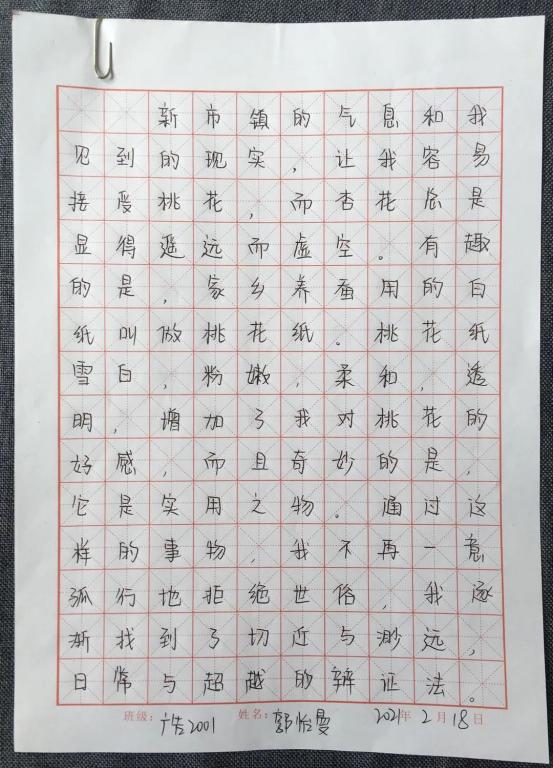 新市镇的气息和我
见到的现实，让我容易
接受桃花，而杏花总是
显得遥远而虚空。有趣
的是，家乡养蚕用的白
纸叫做桃花纸。桃花纸
雪白，粉嫩，柔和，透
明，增加了我对桃花的
好感，而且奇妙的是，
它是实用之物。通过这
样的事物，我不再一意
孤行地拒绝世俗，我逐
渐找到了切近与渺远，
日常与超越的辩证法。
班级：广告2001 姓名：郭怡曼 2021年2月18日